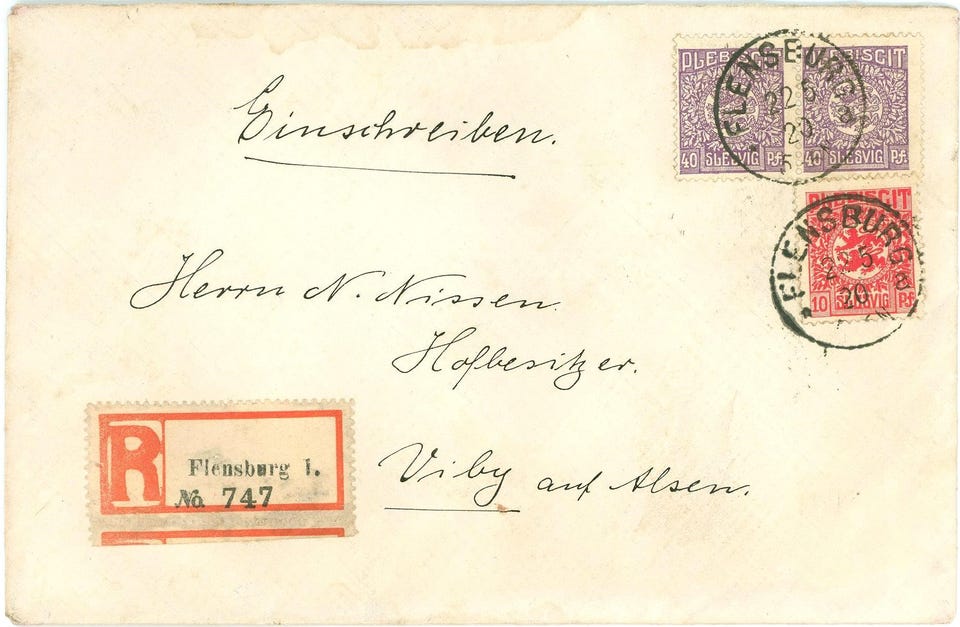 PLEBISCIT PLEBISCIT
FLENSBURG a
22 5
20
40 SLESVIG Pf. 40 SLESVIG Pf.
Einschreiben.
PLEBISCIT
FLENSBURG a
22 5
20
10 SLESVIG Pf.
Herrn N. Nissen.
Hofbesitzer.
R
Flensburg 1.
No. 747
Viby auf Alsen.